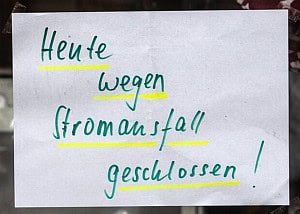 Heute
wegen
Stromausfall
geschlossen!